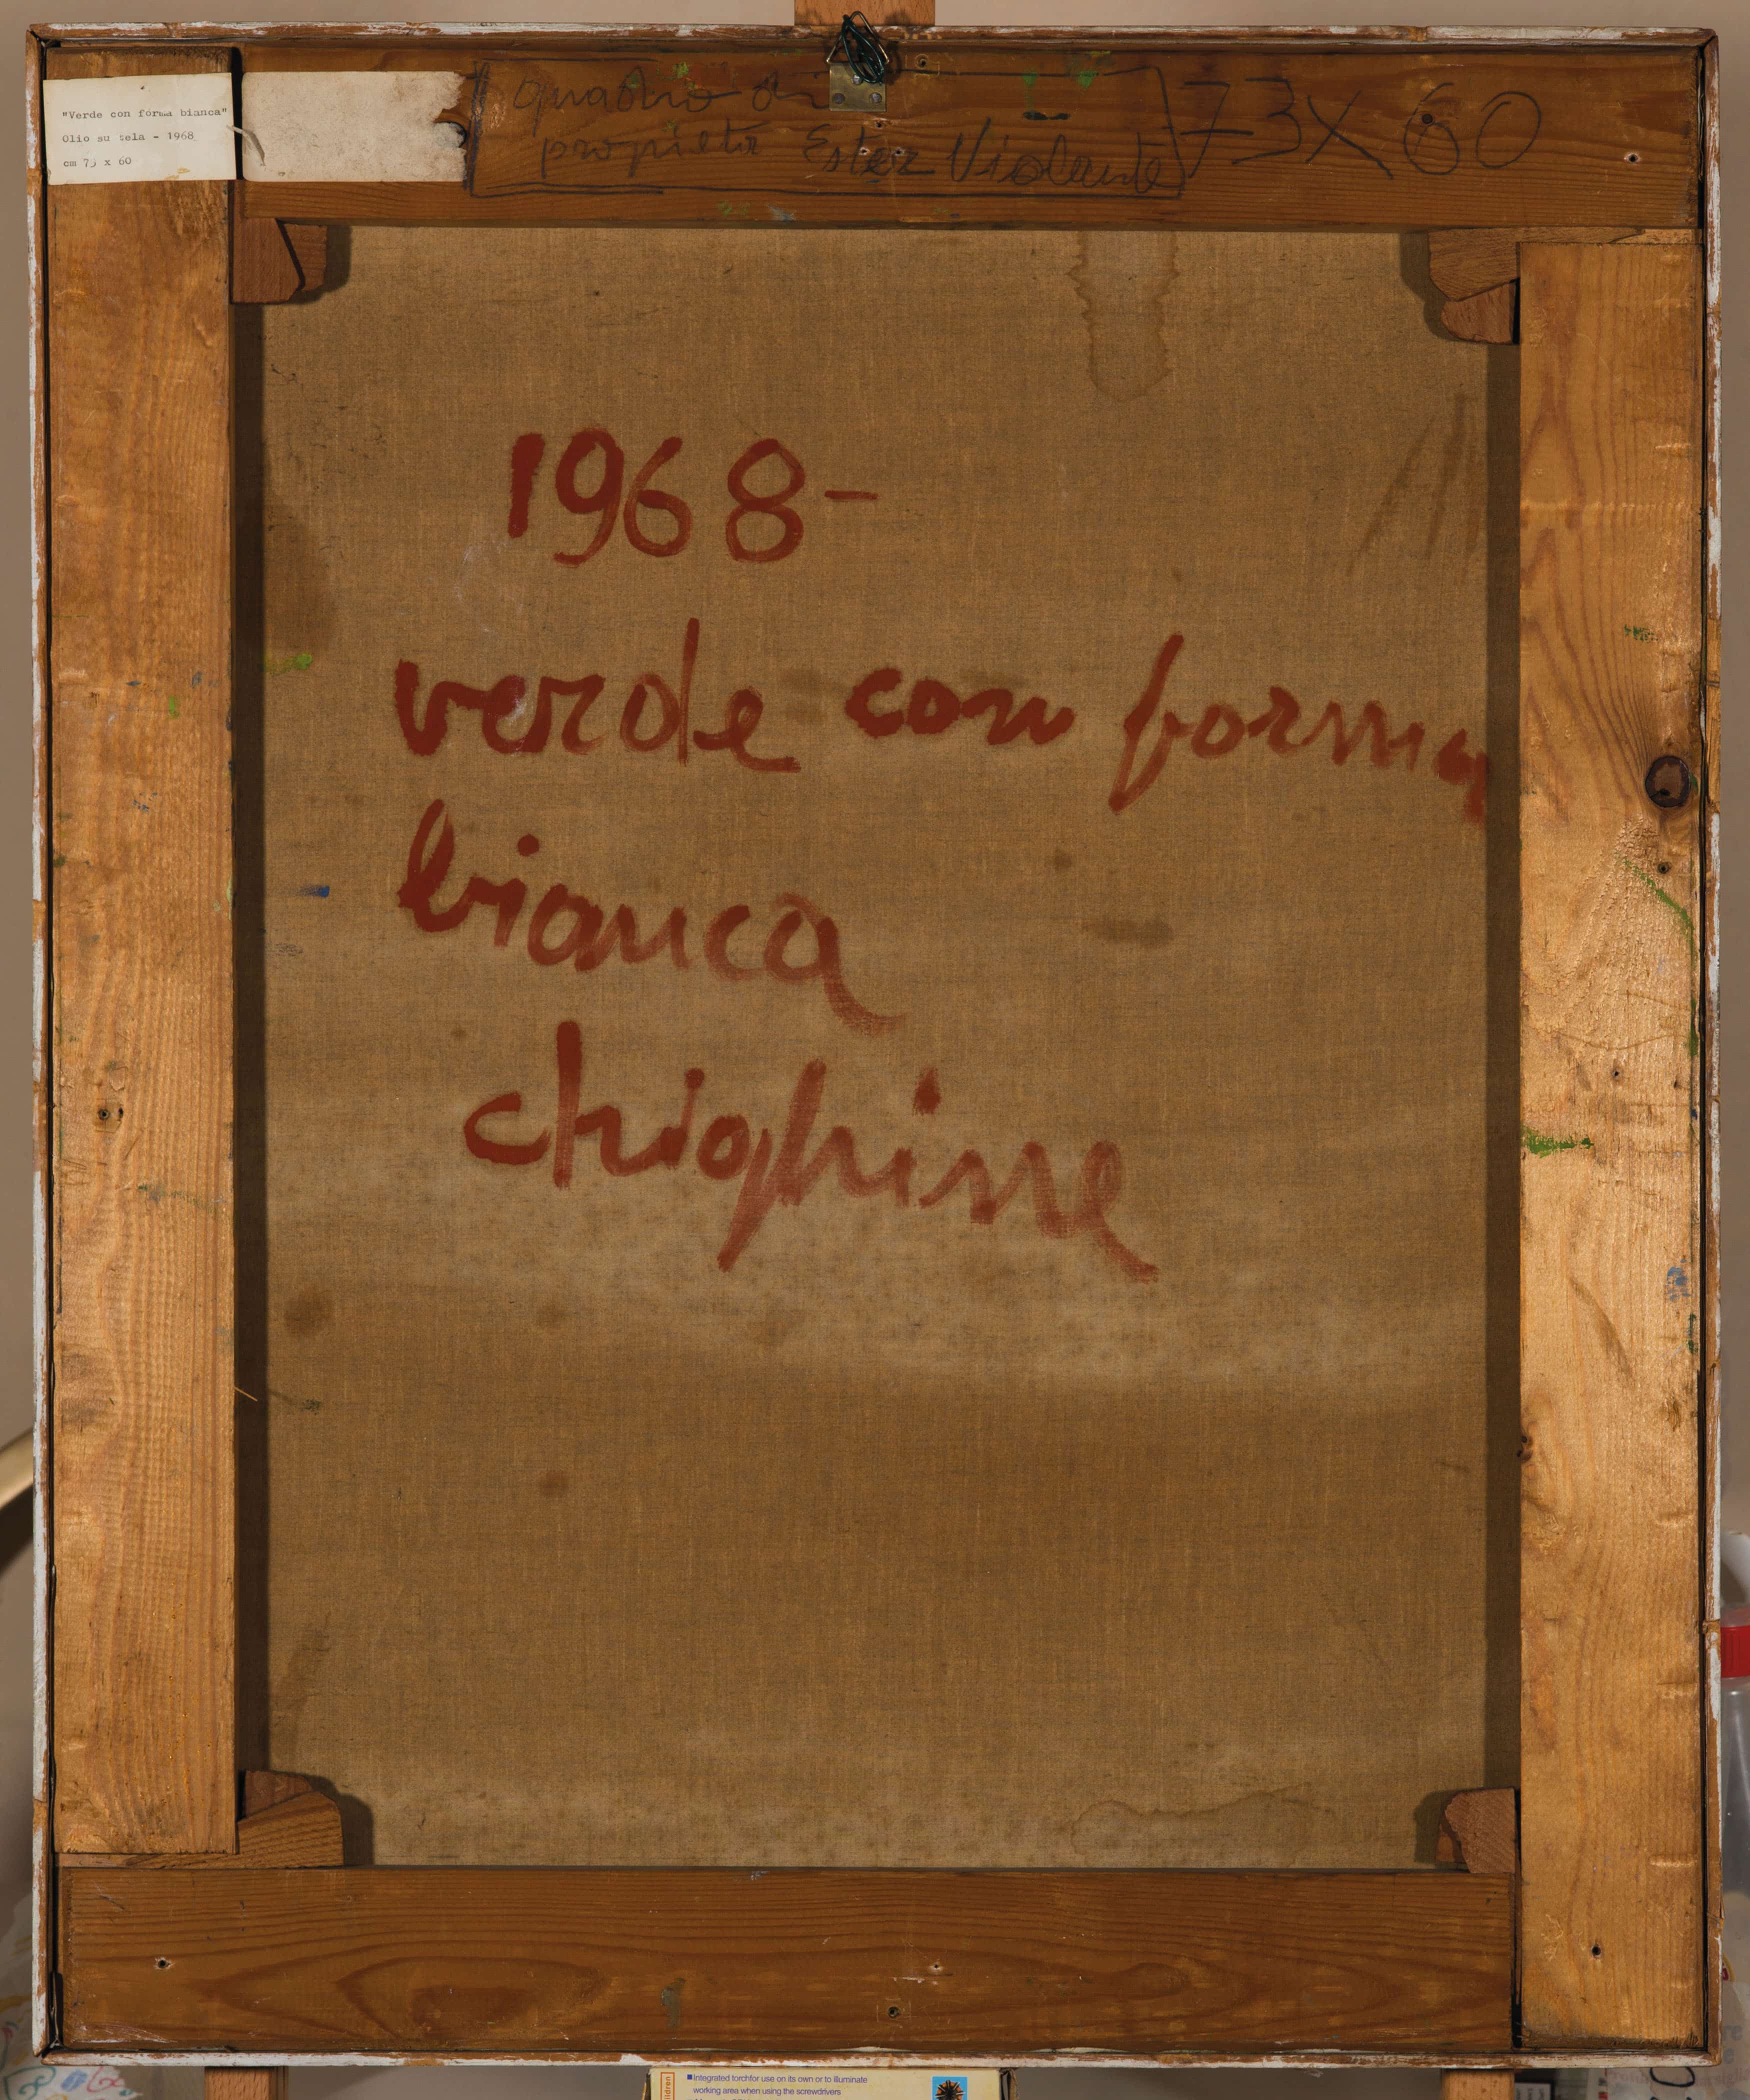 "Verde con forma bianca"
Olio su tela - 1968
cm 73 x 60
quadro di
proprietà Ester Violante
73X60
1968-
verde con forma
bianca
chighine
ildren
Integrated torch for use on its own or to illuminate
working area when using the screwdrivers